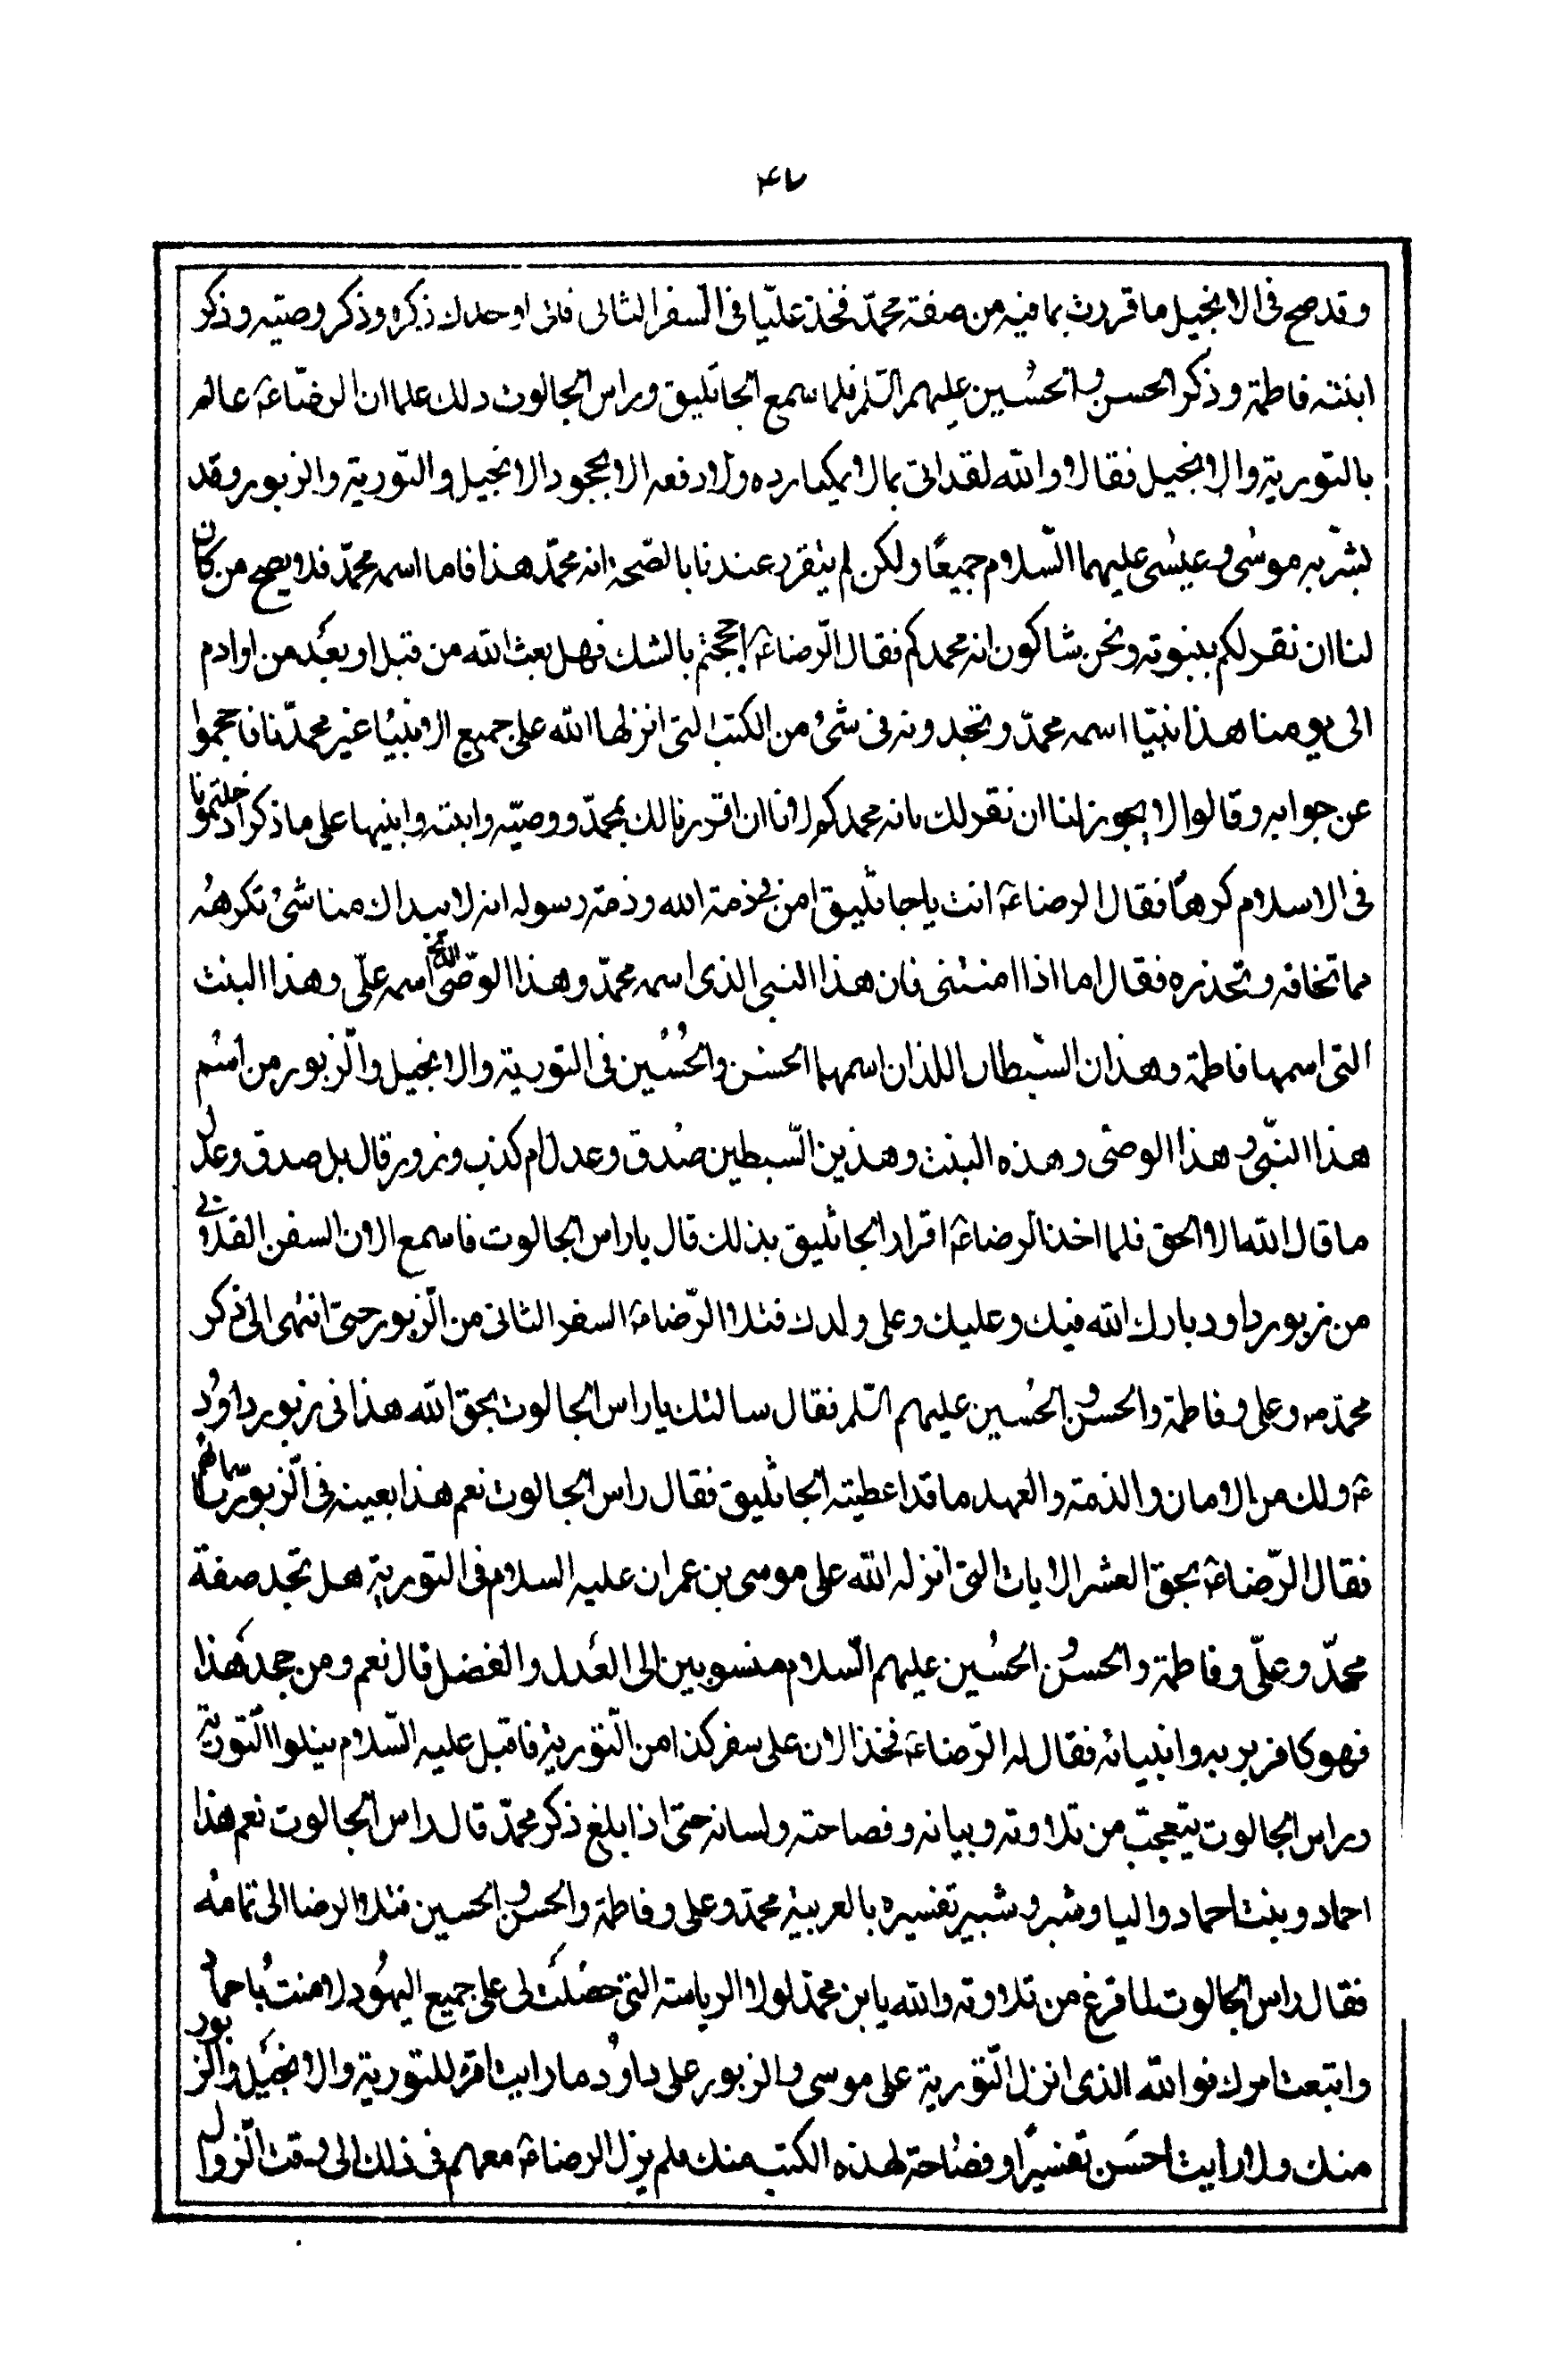 ۴۷
وقد صح فى الانجيل ما قررت بما فيه من صفة محمّد فخذ علّيا فى السّفر الثانى فانى اوحدك ذكره وذكر وصيّه وذكر
ابنته فاطمة وذكر الحسن والحُسين عليهم السّلم فلما سمع الجاثليق وراس الجالوت ذلك علما ان الرضّا عۀ عالم
بالتّورية والانجيل فقالا والله لقد اتى بما لا يمكننا رده ولا دفعه الا بجحود الانجيل والتّورية والزبور وقد
بشّر به موسُى وعيسُى عليهما السّلام جميعًا ولكن لم يتقرر عندنا بالصّحة انه محمّد هذا فاما اسمه محمّد فلا يصح من كان
لنا ان نقر لكم بنبوته ونحن شاكون انه محمدكم فقال الرّضا عۀ احججتم بالشك فهل بعث الله من قبل او بعد من ادم
الى يومنا هذا نبيّا اسمه محمدّ وتجدونه فى شئ من الكتب التى انزلها الله على جميع الانبيُا غير محمدّنا فاحجموا
عن جوابه وقالوا لا يجوز لنا ان نقر لك بانه محمدكم لانا ان اقررنا لك بمحمدّ ووصيّه وابنته وابنيها على ما ذكر ادخلتمونا
فى الاسلام كرهًا فقال الرضا عۀ انت يا جاثليق امن فى ذمة الله وذمة رسوله انه لا يبداك منا شئ تكرهُه
مما تخافه وتحذره فقال اما اذا امنتنى فان هذا النبى الذى اسمه محمدّ وهذا الوصّى الذى اسمه علّى وهذا البنت
التى اسمها فاطمة وهذان السبطان اللذان اسمهما الحسن والحُسَين فى التورية والانجيل والزّبور من اسُم
هذا النّبى وهذا الوصى وهذه البنت وهذين السّبطين صُدق وعدل ام كذب وزور قال بل صدق وعدل
ما قال الله الا الحق فلما اخذ الرضا عۀ اقرار الجاثليق بذلك قال يا راس الجالوت فاسمع الان السفر الفلانى
من زبور داود بارك الله فيك وعليك وعلى ولدك فتلا الرّضا عۀ السفر الثانى من الزّبور حتىّ انتهى الى ذكر
محمدّ ص وعلى وفاطمة والحسن والحُسين عليهم السّلم فقال سالتك يا راس الجالوت بحق الله هذا فى زبور داوُد
عۀ ولك من الامان والذمة والعهد ما قد اعطيته الجاثليق فقال راس الجالوت نعم هذا بعينه فى الزّبور باسمائهم
فقال الرّضا عۀ بحق العشر الايات التى انزله الله على موسى بن عمران عليه السلام فى التورية هل تجد صفة
محمّد وعلّى وفاطمة والحسن والحُسين عليهم السّلام منسوبين الى العَدل والفضل قال نعم ومن جحد هذا
فهو كافر بربه وانبيائه فقال له الرّضا عۀ فخذ الان على سفر كذا من التّورية فاقبل عليه السّلام يتلوا التّورية
وراس الجالوت يتعجّب من تلاوته وبيانه وفصاحته ولسانه حتى اذا بلغ ذكر محمدّ قال راس الجالوت نعم هذا
احماد وبنت احماد واليا وشبر وشبير تفسيره بالعربية محمدّ وعلى وفاطمة والحسن والحسين فتلا الرضا الى تمامه
فقال راس الجالوت لما فرغ من تلاوته والله يا بن محمدّ لولا الرياسة التى حصَلَت لى على جميع اليهُود لامنتُ باحماد
واتبعت امرك فو الله الذى انزل التّورية على موسى والزبور على داوُد ما رايت اقرء للتورية والانجيل والزبور
منك ولا رايت احسَن تفسيرًا وفصَاحة لهذه الكتب منك فلم يزل الرضا عۀ معهم فى ذلك الى وقت الزّوال